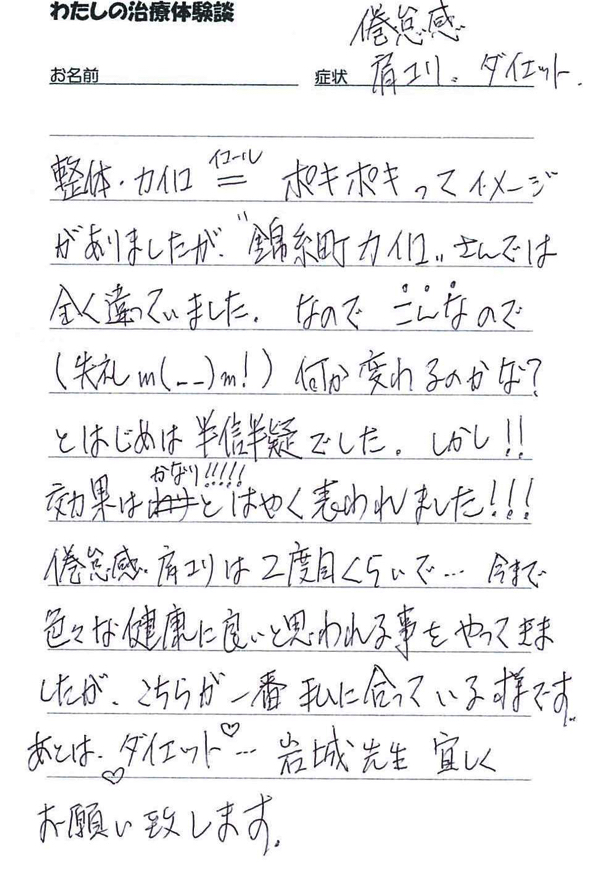 わたしの治療体験談
倦怠感
お名前 症状 肩コリ、ダイエット.
イコール
整体・カイロ = ポキポキってイメージ
がありましたが、"錦糸町カイロ"さんでは
全く違っていました。なので こんなので
(失礼m(__)m!) 何が変わるのかな?
とはじめは半信半疑でした。しかし!!
かなり!!!!!
効果は とはやく表われました!!!
倦怠感・肩コリは2度目くらいで… 今まで
色々な健康に良いと思われる事をやってきま
したが、こちらが一番私に合っている様です。
あとは、ダイエット♡… 岩城先生 宜しく
♡
お願い致します。